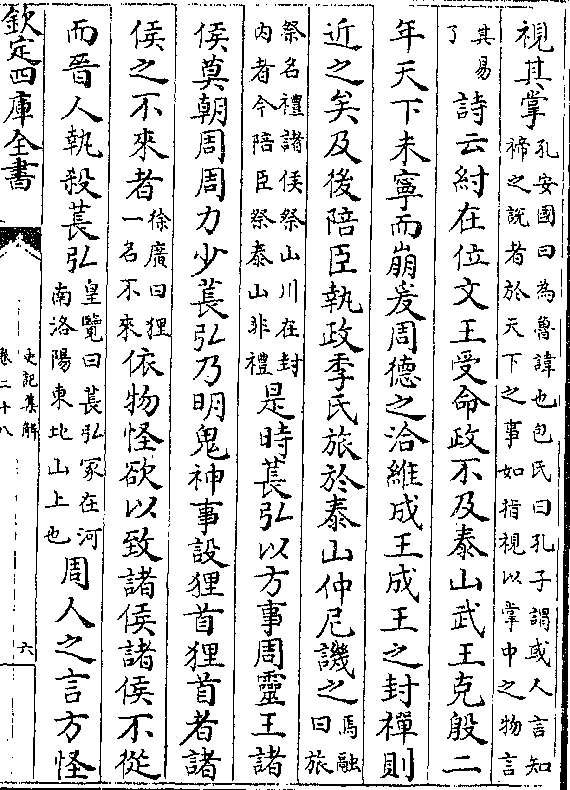 視其掌孔安國曰為魯諱也包氏曰孔子謂或人言知禘之說者於天下之事如指視以掌中之物言
其易了詩云紂在位文王受命政不及泰山武王克殷二
年天下未寧而崩爰周德之洽維成王成王之封禪則
近之矣及後陪臣執政季氏旅於泰山仲尼譏之馬融曰旅
祭名禮諸侯祭山川在封内者今陪臣祭泰山非禮是時萇弘以方事周靈王諸
侯莫朝周周力少萇弘乃明鬼神事設狸首狸首者諸
侯之不來者徐廣曰狸一名不來依物怪欲以致諸侯諸侯不從
而晉人執殺萇弘皇覽曰萇弘冢在河南洛陽東北山上也周人之言方怪
欽定四庫全書
史記集解
卷二十八
六